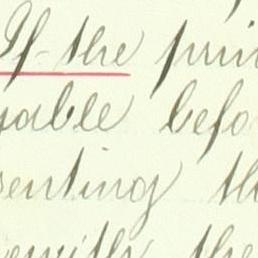 If the prin
yable befo
senting th
ewith the